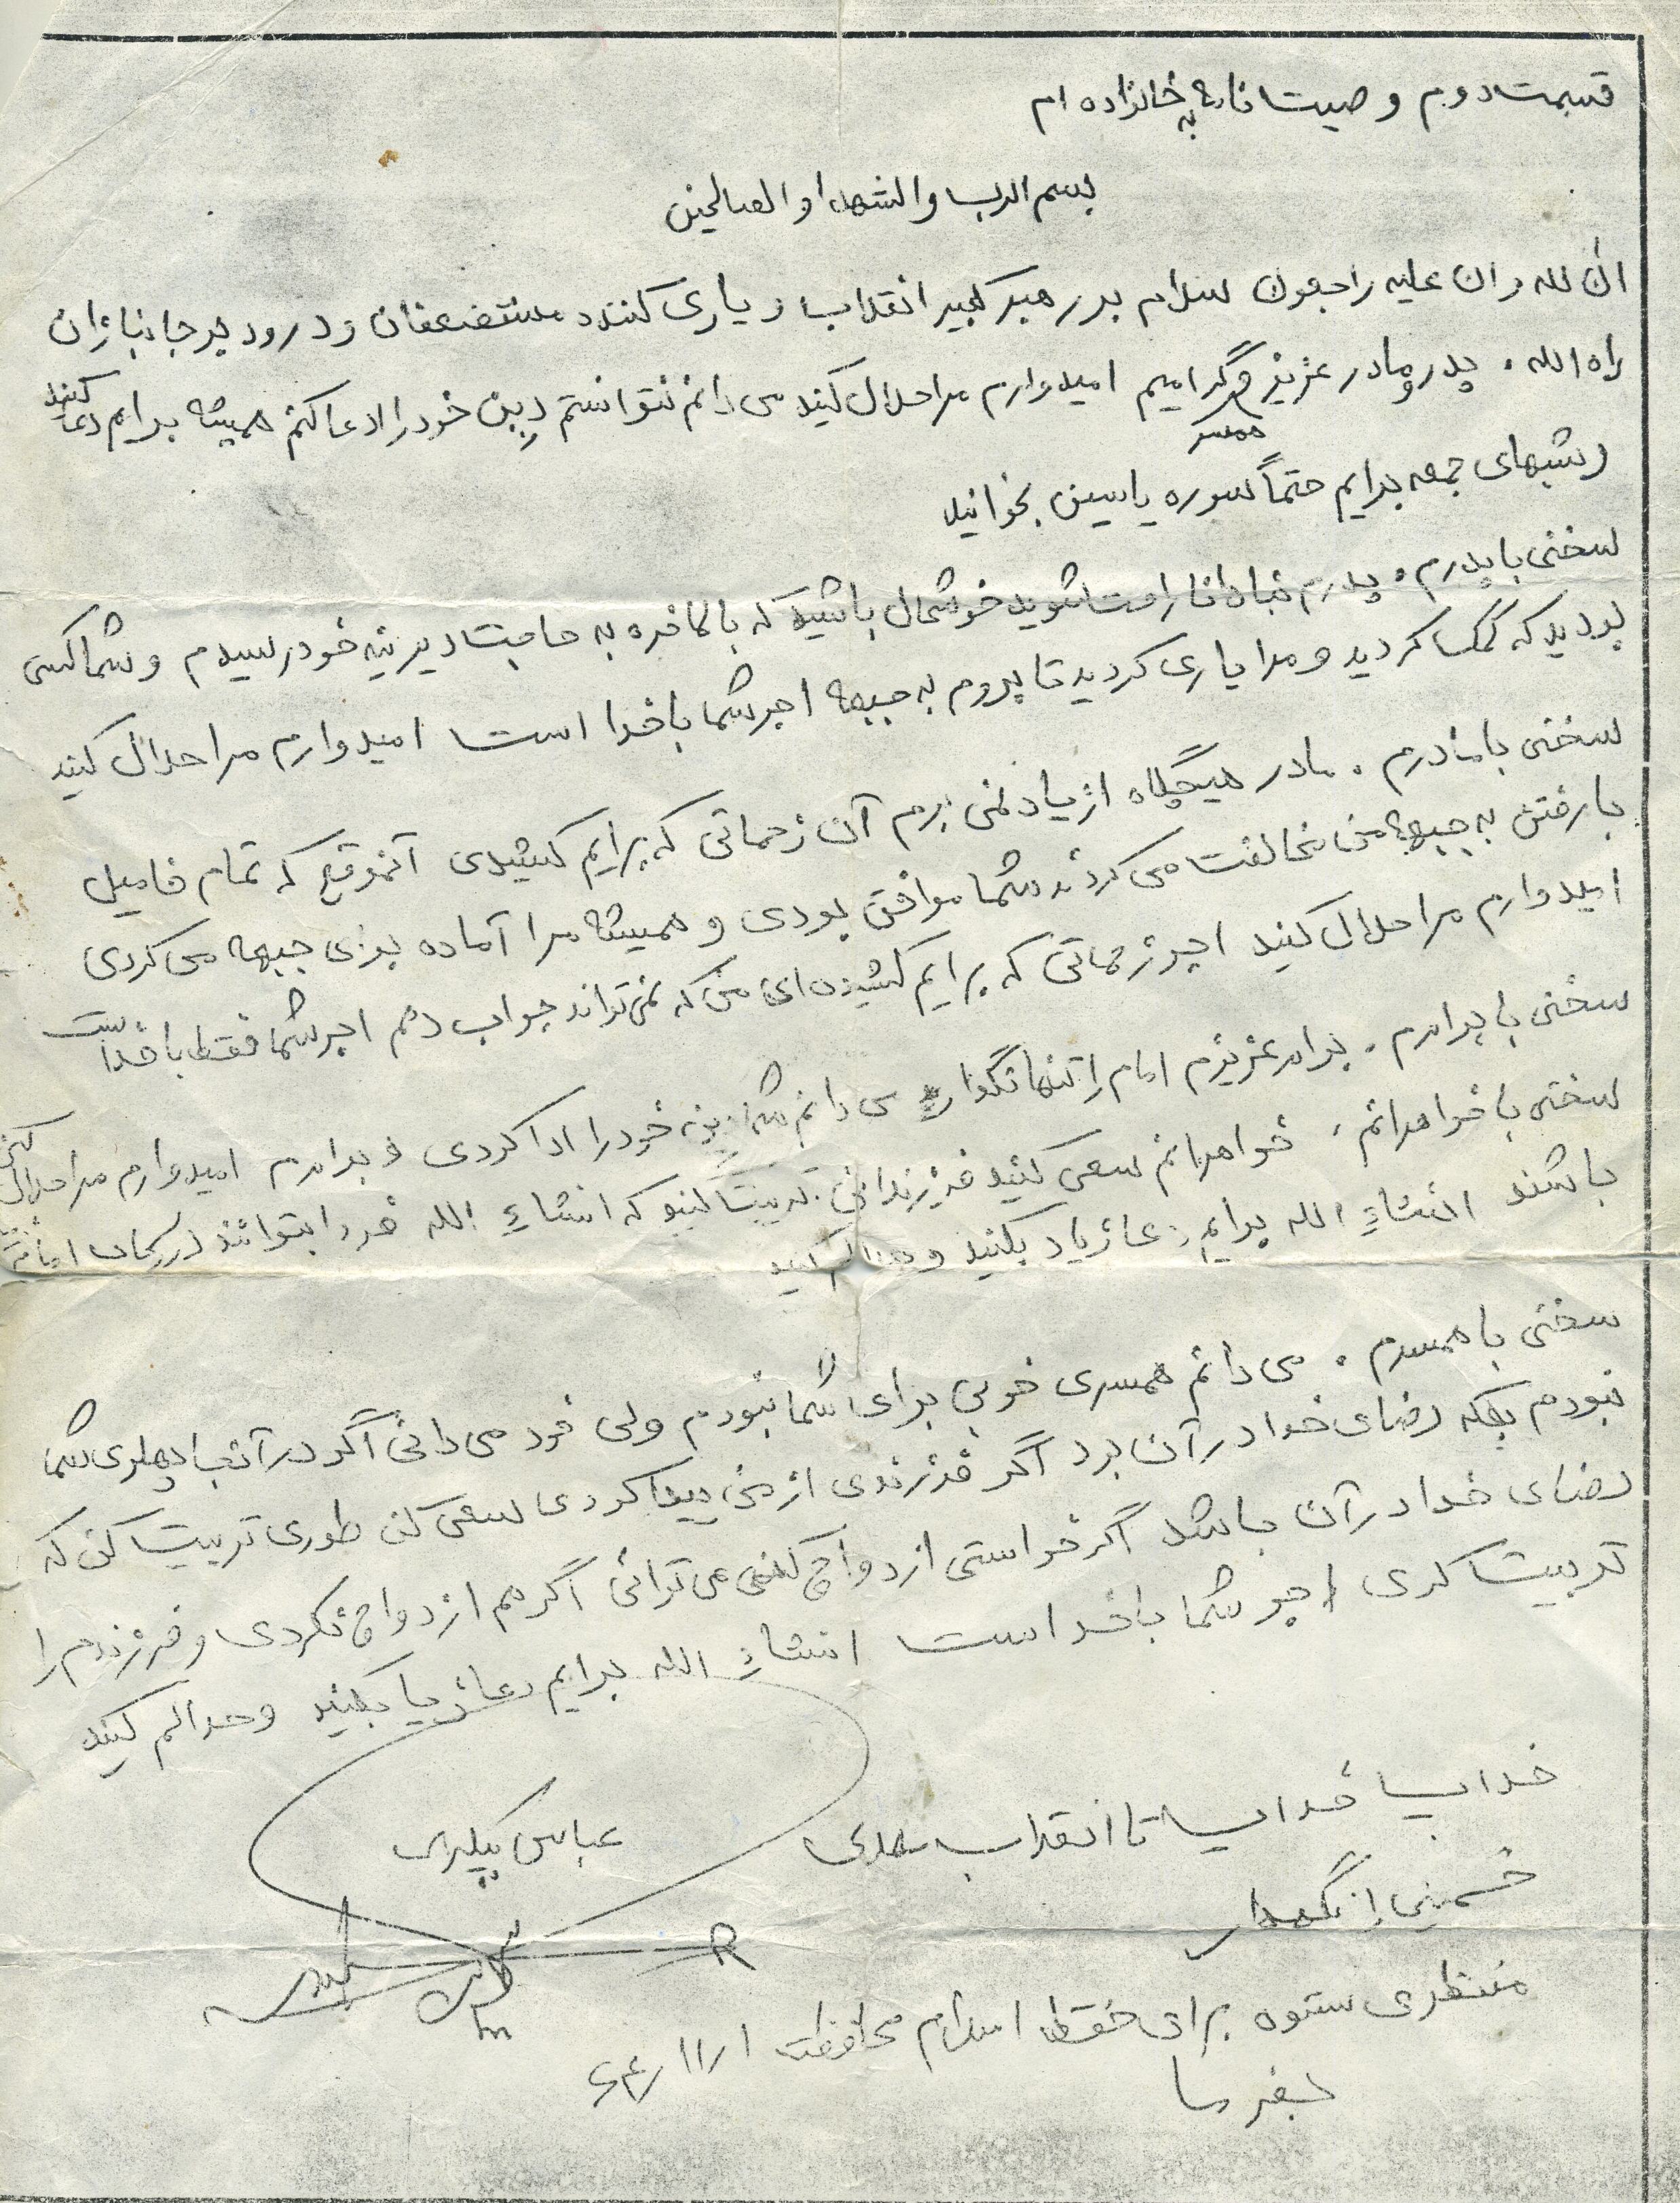 قسمت دوم وصیت نامه به خانواده ام
بسم الرب والشهدا و الصالحین
ان لله و ان علیه راجعون سلام بر رهبر کبیر انقلاب و یاری کننده مستضعفان و درود بر جانبازان
راه الله . پدر و مادر عزیز و همسر گرامیم امیدوارم مرا حلال کنید می دانم نتوانستم دین خود را ادعا کنم همیشه برایم دعا کنید
و شبهای جمعه برایم حتماً سوره یاسین بخوانید
سخنی با پدرم . پدرم مبادا ناراحت شوید خوشحال باشید که بالاخره به حاجت دیرینه خود رسیدم و شما کسی
بودید که کمک کردید و مرا یاری کردید تا بروم به جبهه اجر شما با خدا است امیدوارم مرا حلال کنید
سخنی با مادرم . مادر هیچگاه از یاد نمی برم آن زحماتی که برایم کشیدی آنموقع که تمام فامیل
با رفتن به جبهه من مخالفت می کردند شما موافق بودی و همیشه مرا آماده برای جبهه می کردی
امیدوارم مرا حلال کنید اجر زحماتی که برایم کشیده ای من که نمی تواند جواب دهم اجر شما فقط با خداست
سخنی با برادرم . برادر عزیزم امام را تنها نگذارید می دانم شما دین خود را ادا کردی و برادرم امیدوارم مرا حلال کنی
سخنی با خواهرانم . خواهرانم سعی کنید فرزندانی تربیت کنید که انشاء الله فردا بتوانند در رکاب امام
باشند انشاء الله برایم دعا زیاد بکنید و حلالم کنید
سخنی با همسرم . می دانم همسری خوبی برای شما نبودم ولی خود می دانی اگر در آنجا پهلوی شما
نبودم بلکه رضای خدا در آن بود اگر فرزندی از من پیدا کردی سعی کن طوری تربیت کن که
رضای خدا در آن باشد اگر خواستی ازدواج کنی می توانی اگر هم ازدواج نکردی و فرزندم را
تربیت کردی اجر شما با خداست انشاء الله برایم دعا زیا بکنید و حلالم کنید
خدایا خدایا تا انقلاب مهدی
عباس
خمینی را نگهدار
منتظری ستوه برای حفظ اسلام محافظت
بفرما